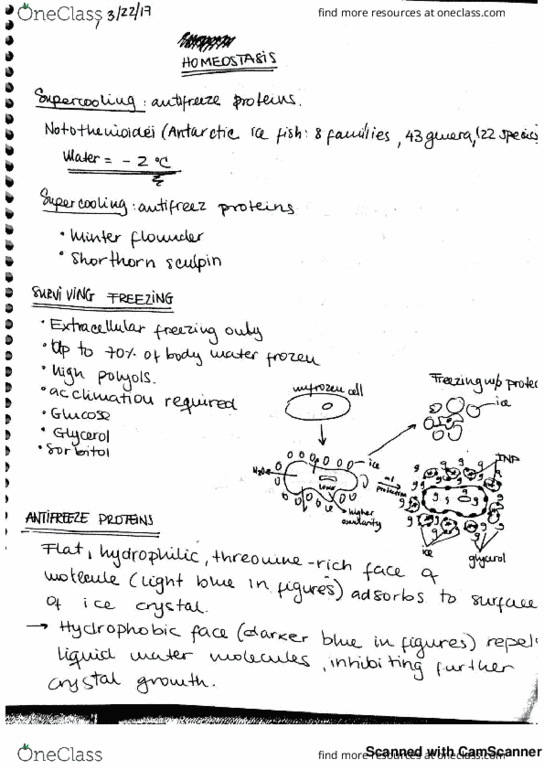 OneClass
3/22/17
find more resources at oneclass.com
HOMEOSTASIS
Supercooling: antifreeze proteins.
Notothenioidei (Antarctic ice fish: 8 families, 43 genera, 122 species)
Water = - 2 °C
Supercooling: antifreez proteins
• Winter flounder
• Shorthorn sculpin
SURVIVING FREEZING
• Extracellular freezing only
• Up to 70% of body water frozen
• high polyols.
• acclimation required
• Glucose
• Glycerol
• Sorbitol
unfrozen cell
Freezing w/o protec
ice
H₂O
ice
higher osmolarity
protection
INP
ice
glycerol
ANTIFREEZE PROTEINS
Flat, hydrophilic, threonine-rich face of
molecule (light blue in figures) adsorbs to surface
of ice crystal.
→ Hydrophobic face (darker blue in figures) repel
liquid water molecules, inhibiting further
crystal growth.
Scanned with CamScanner
OneClass
find more resources at oneclass.com